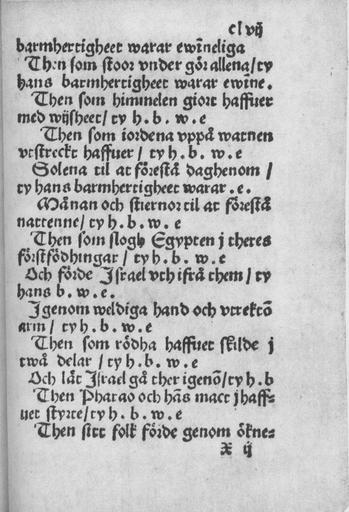 cl vij
barmhertigheet warar ewĩneliga
Then som stoor vnder gör allena/ty
hans barmhertigheet warar ewĩne.
Then som himmelen giort haffuer
med wijsheet/ ty h. b. w. e
Then som iordena vppå watnen
vtstreckt haffuer / ty h. b. w. e
Solena til at förestå daghenom /
ty hans barmhertigheet warar. e.
Månan och stiernor til at förestå
nattenne/ ty h. b. w. e
Then som slogh Egypten j theres
förstfödhingar / ty h. b. w. e
Och förde Israel vth ifrå them / ty
hans b. w. e.
Igenom weldiga hand och vtrektõ
arm / ty h. b. w. e
Then som rödha haffuet skilde j
twå delar / ty h. b. w. e
Och lät Israel gå ther igenõ/ty h. b
Then Pharao och hãs mact j haff-
uet styrte/ty h. b. w. e
Then sitt folk förde genom ökne-
X ij